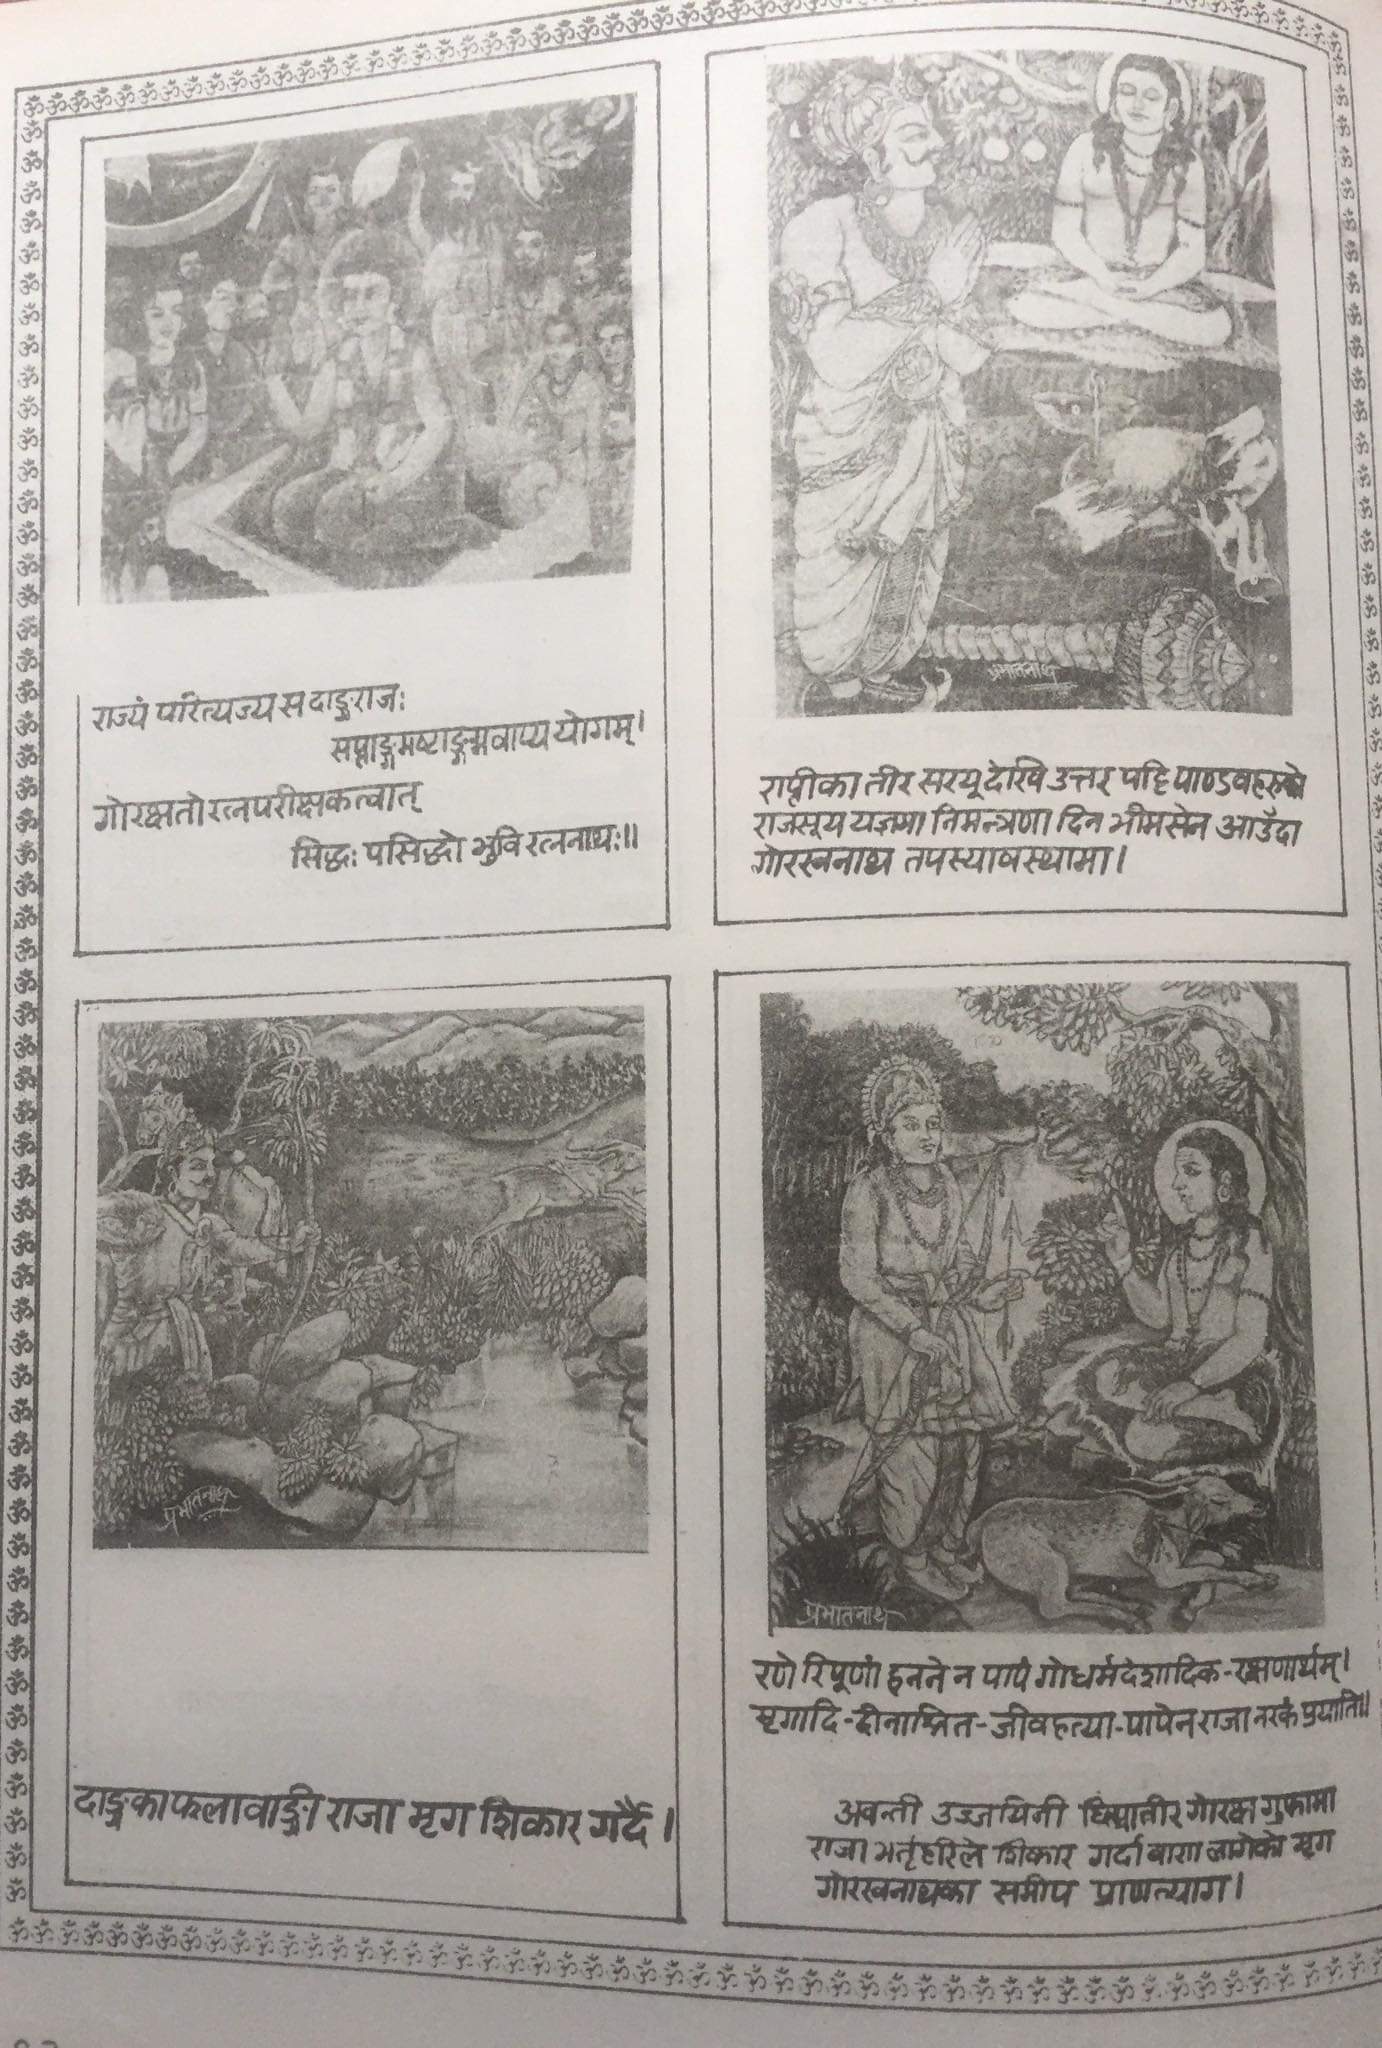 राज्यं परित्यज्य स दाङ्गराजः
सप्ताङ्गमष्टाङ्गमवाप्य योगम्।
गोरक्षतो रत्नपरीक्षकत्वात्
सिद्धः पसिद्धो भुवि रत्ननाथः॥
प्रभातनाथ
राप्तीका तीर सरयू देखि उत्तर पट्टि पाण्डवहरुको
राजसूय यज्ञमा निमन्त्रणा दिन भीमसेन आउँदा
गोरखनाथ तपस्यावस्थामा।
प्रभातनाथ
दाङ्गका फलावाङ्गी राजा मृग शिकार गर्दै।
प्रभातनाथ
रणे रिपूणां हनने न पापं गोधर्मदेशादिक-रक्षणार्थम्।
मृगादि-दीनाश्रित-जीवहत्या-पापेन राजा नरकं प्रयाति॥
अवन्ती उज्जयिनी क्षिप्रातीर गोरक्ष गुफामा
राजा भर्तृहरिले शिकार गर्दा वाण लागेको मृग
गोरखनाथका समीप प्राणत्याग।